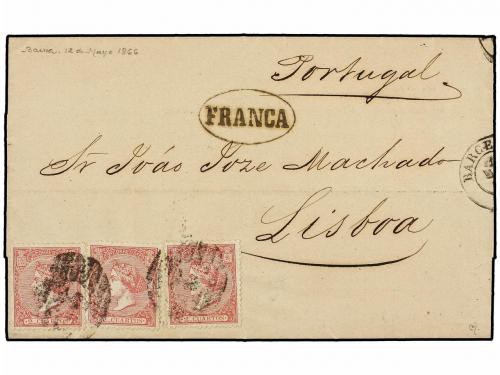 Barna. 12 de Mayo 1866
Portugal
FRANCA
BARCE
Sr Joâs Joze Machado
Lisboa
2 CUARTOS 2 CUARTOS 2 CUARTOS